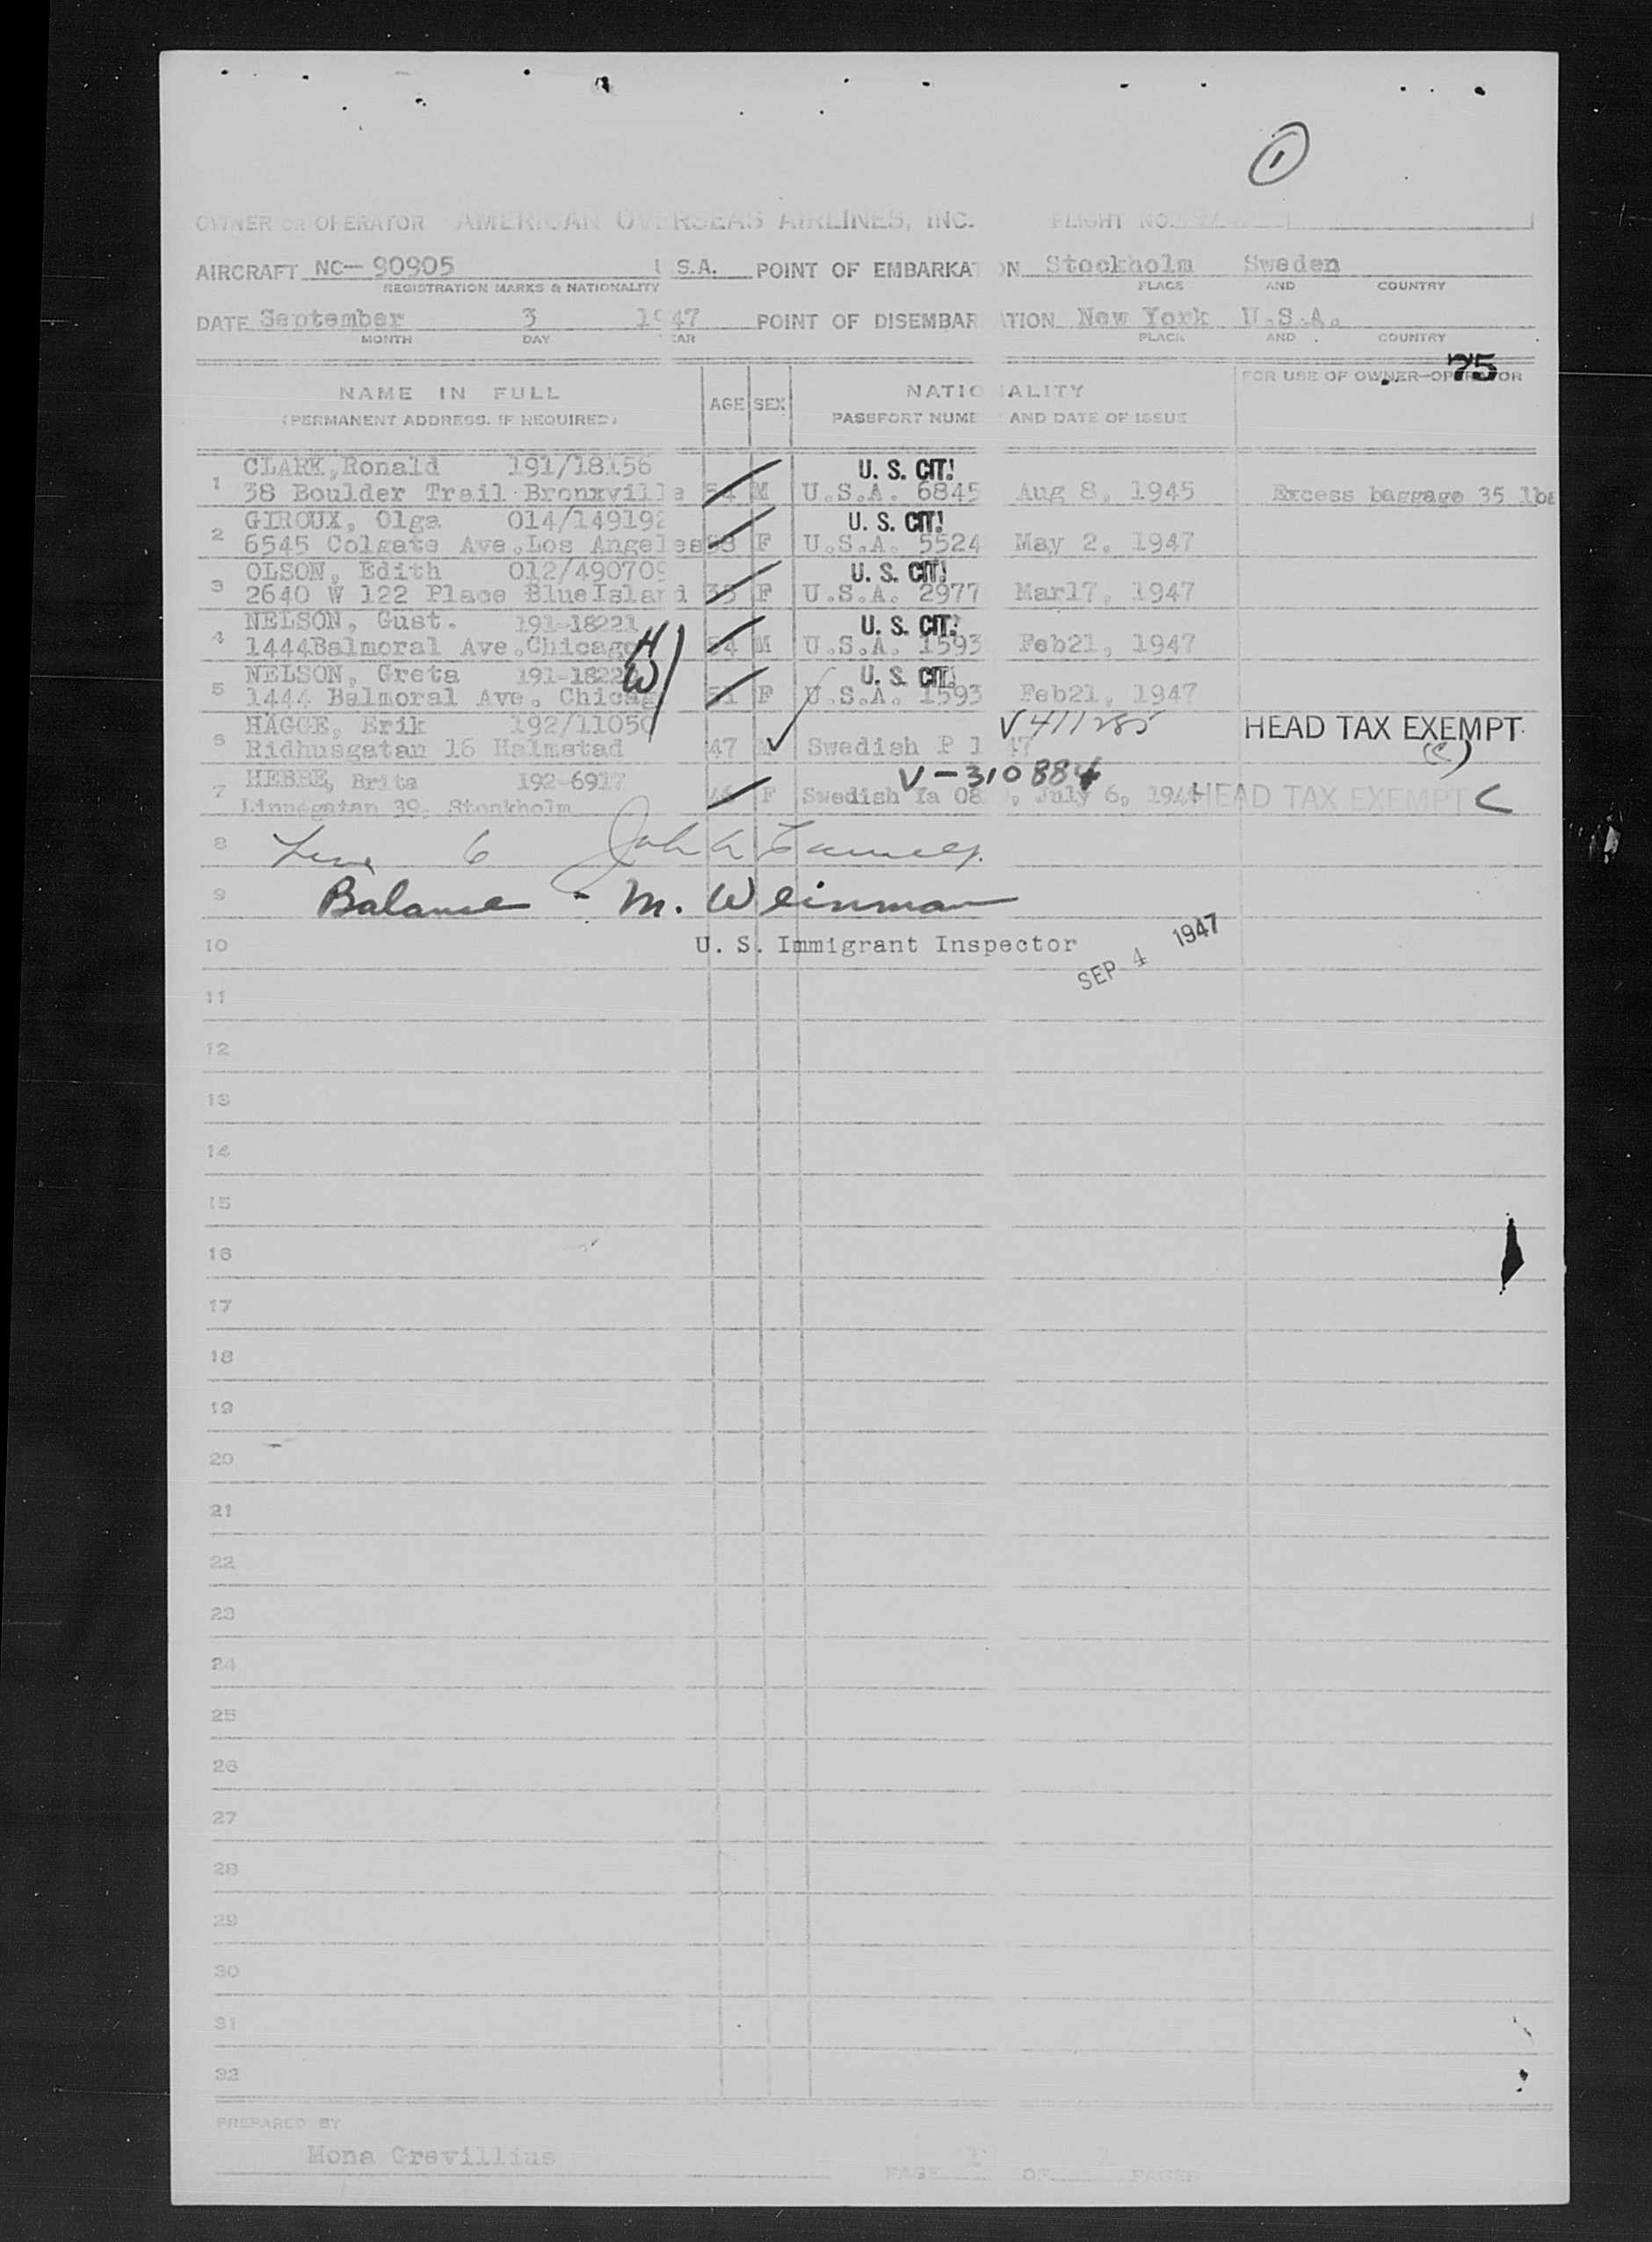 1
OWNER OR OPERATOR AMERICAN OVERSEAS AIRLINES, INC. FLIGHT NO.
AIRCRAFT NC-90905 U.S.A. POINT OF EMBARKATION Stockholm Sweden
REGISTRATION MARKS & NATIONALITY PLACE AND COUNTRY
DATE September 3 1947 POINT OF DISEMBARKATION New York U.S.A.
MONTH DAY YEAR PLACE AND COUNTRY
75
NAME IN FULL AGE SEX NATIONALITY FOR USE OF OWNER-OPERATOR
(PERMANENT ADDRESS, IF REQUIRED) PASSPORT NUMBER AND DATE OF ISSUE
CLARK, Ronald 191/18156 U. S. CIT.
1 38 Boulder Trail Bronxville 54 M U.S.A. 6845 Aug 8, 1945 Excess baggage 35 lbs
GIROUX, Olga 014/149192 U. S. CIT.
2 6545 Colgate Ave. Los Angeles F U.S.A. 5524 May 2, 1947
OLSON, Edith 012/490709 U. S. CIT.
3 2640 W 122 Place BlueIsland F U.S.A. 2977 Mar17, 1947
NELSON, Gust. 191-18221 H U. S. CIT.
4 1444Balmoral Ave.Chicago 54 M U.S.A. 1593 Feb21, 1947
NELSON, Greta 191-1822 W U. S. CIT.
5 1444 Balmoral Ave. Chicago F U.S.A. 1593 Feb21, 1947
HÄGGE, Erik 192/11050 V411285 HEAD TAX EXEMPT
6 Ridhusgatan 16 Halmstad 47 M Swedish P 1 47 (C)
HEBBE, Brita 192-6917 V-310884
7 Linnégatan 39, Stockholm F Swedish Ia 08 , July 6, 194 HEAD TAX EXEMPT C
8 Line 6 John
9 Balance - M. Weinman
10 U. S. Immigrant Inspector SEP 4 1947
11
12
13
14
15
16
17
18
19
20
21
22
23
24
25
26
27
28
29
30
31
32
PREPARED BY
Mona Grevillius PAGE 1 OF 1 PAGES